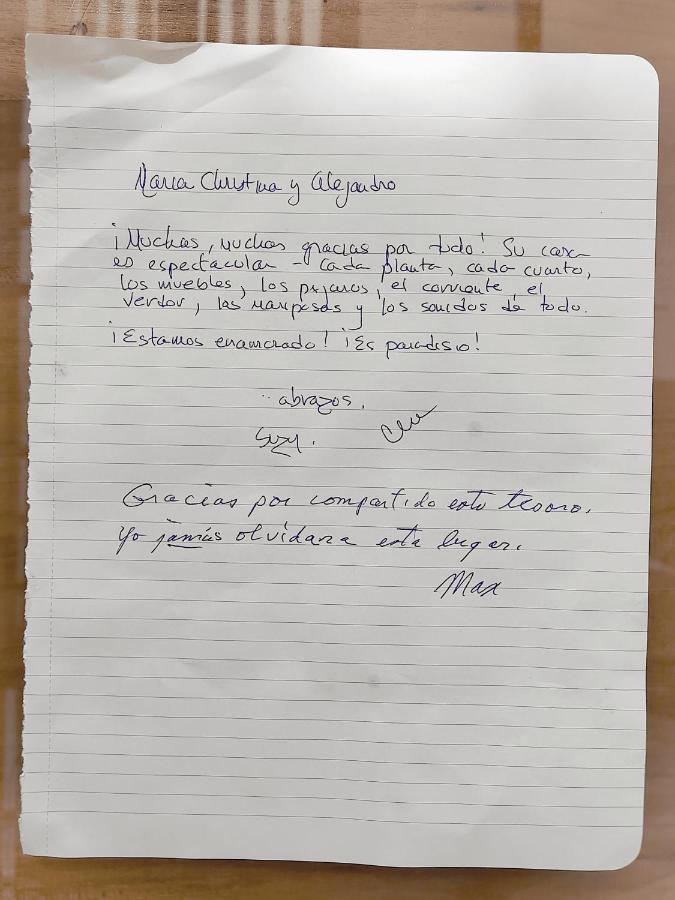 Maria Christina y Alejandro
¡Muchas, muchas gracias por todo! Su casa
es espectacular - cada planta, cada cuarto,
los muebles, los pajaros, el corriente, el
verdor, las mariposas y los sonidos de todo.
¡Estamos enamorado! ¡Es paradisio!
abrazos,
Suzy.
Gracias por compartido esto tesoro.
Yo jamás olvidara esta lugar.
Max